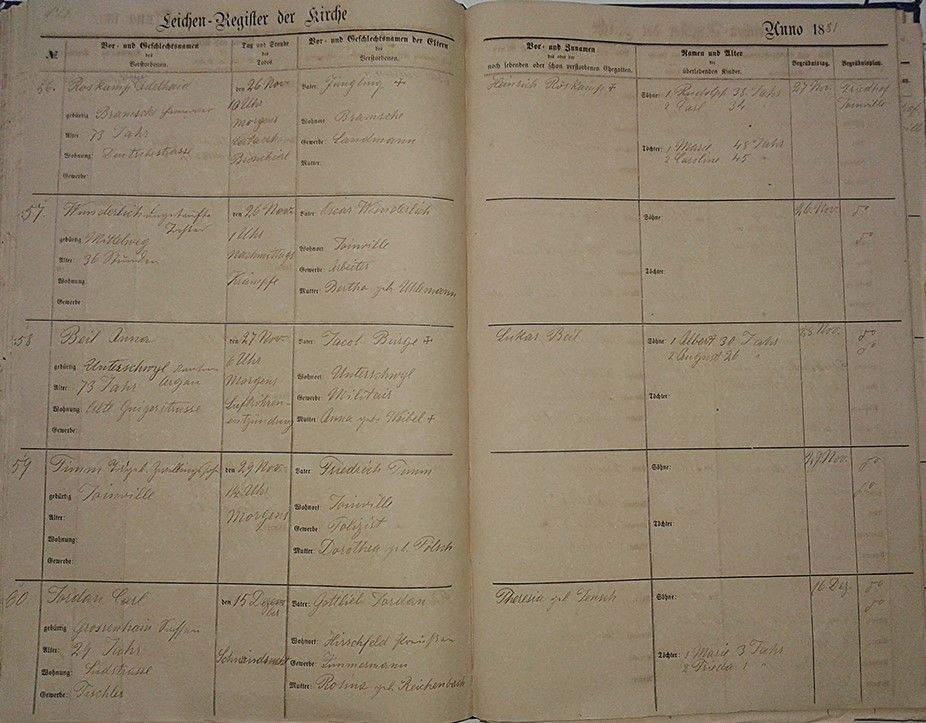 Leichen-Register der Kirche
Anno 1881
№
Vor- und Geschlechtsnamen
des
Verstorbenen.
Tag und Stunde
des
Todes
Vor- und Geschlechtsnamen der Eltern
des
Verstorbenen.
Vor- und Zunamen
des oder der
noch lebenden oder schon verstorbenen Ehegatten.
Namen und Alter
der
überlebenden Kinder.
Begräbnißtag.
Begräbnißplatz.
56.
Roskamp Adelhaid
gebürtig Bramsche Hannover
Alter: 73 Jahr
Wohnung: Deutschestrasse
Gewerbe:
den 26 Nov.
10 Uhr
Morgens
Vater Jüngling +
Wohnort Bramsche
Gewerbe: Landmann
Mutter:
Heinrich Roskamp +
Söhne: 1 Rudolph 38 Jahr
2 Carl 34
Töchter: 1 Marie 48 Jahr
2 Caroline 45 "
27 Nov.
Friedhof
Joinville
57.
Wunderlich ungetaufte
Tochter
gebürtig Mittelweg
Alter: 36 Stunden
Wohnung:
Gewerbe:
den 26 Nov.
1 Uhr
Nachmittags
Krämpfe
Vater Oscar Wunderlich
Wohnort Joinville
Gewerbe: Arbeiter
Mutter: Bertha geb. Uhlemann
Söhne
Töchter:
26 Nov.
do
do
58
Beil Anna
gebürtig Unterschwyl Kanton
Argau
Alter: 73 Jahr
Wohnung:
Gewerbe:
den 27 Nov.
6 Uhr
Morgens
Luftröhren-
entzündung
Vater: Jacob Bürge +
Wohnort Unterschwyl
Gewerbe: Militair
Mutter Anna geb. Waibel +
Lukas Beil
Söhne: 1 Albert 30 Jahr
2 August 26 "
Töchter:
Nov.
do
do
59
Timm
gebürtig Joinville
Alter:
Wohnung:
Gewerbe:
den 29 Nov.
1½ Uhr
Morgens
Vater Friedrich Timm
Wohnort: Joinville
Gewerbe Polizist
Mutter: Dorothea geb. Pölsch
Söhne:
Töchter:
29 Nov.
do
do
60
Jordan Carl
gebürtig Grossenhain Sachsen
Alter: 29 Jahr
Wohnung: Südstrasse
Gewerbe: Tischler
den 15 Dezem
ber
Schwindsucht
Vater: Gottlieb Jordan
Wohnort: Hirschfeld Preußen
Gewerbe: Zimmermann
Mutter: Rosine geb. Reichenbach
Theresia geb. Jensch
Söhne:
Töchter: 1 Marie 3 Jahr
2 Frieda 1 "
16 Dez.
do
do